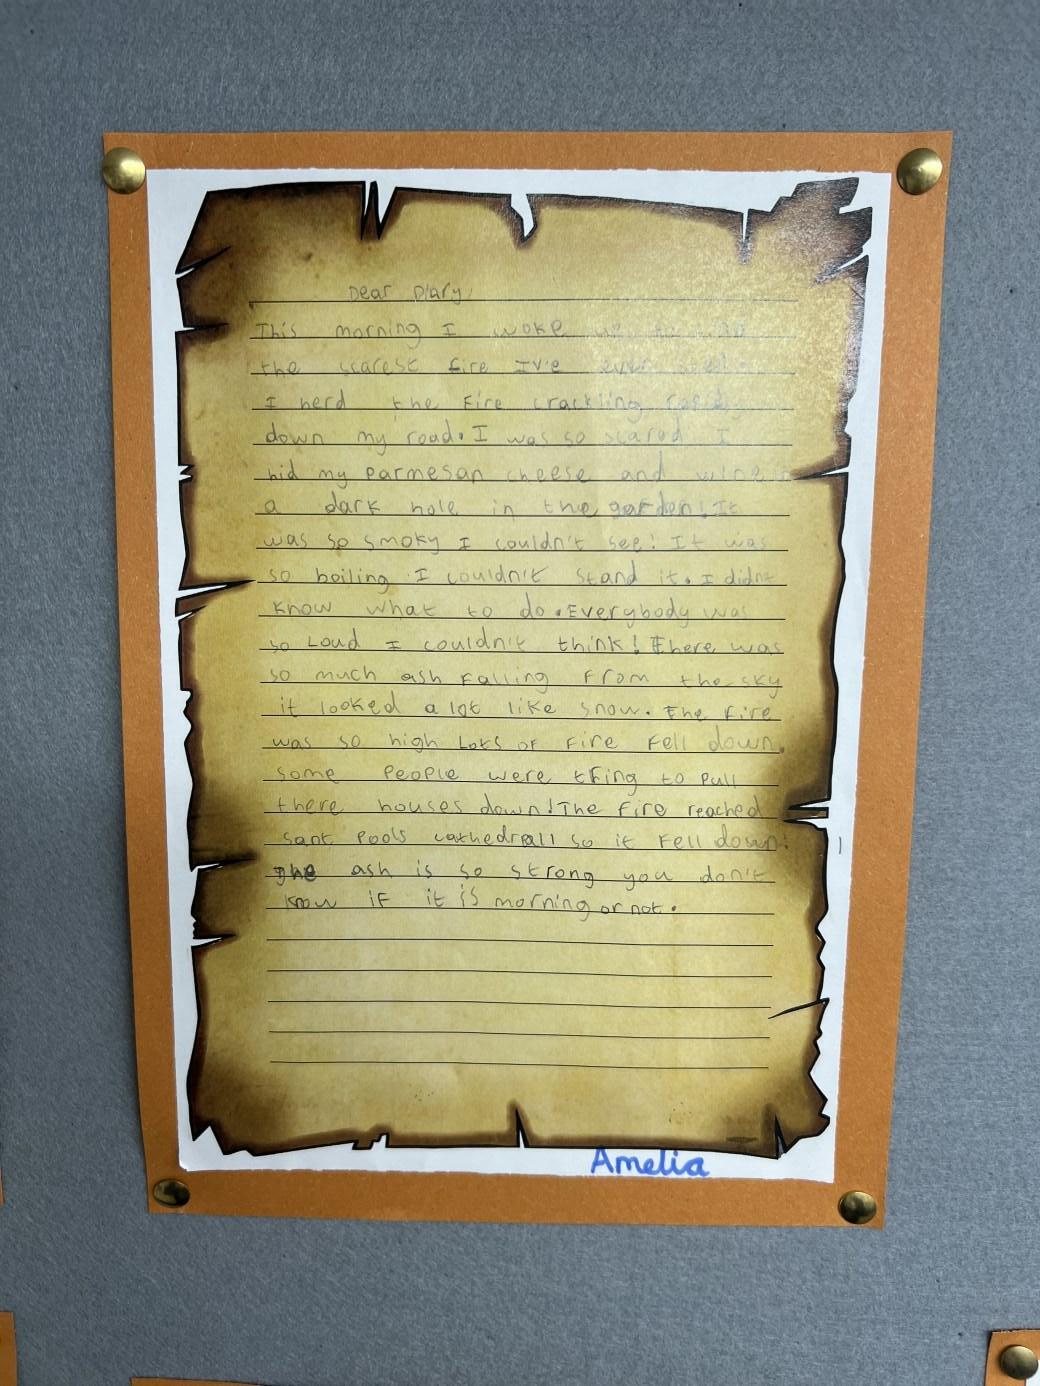 Dear Diary,
This morning I woke up to
the scarest fire Iv'e ever
I herd the fire crackling
down my road. I was so scared I
hid my parmesan cheese and wine in
a dark hole in the garden! It
was so smoky I couldn't see! It was
so boiling I couldn't stand it. I didnt
know what to do. Everybody was
so Loud I couldn't think! there was
so much ash falling from the sky
it looked a lot like snow. the fire
was so high Lots of fire fell down.
some people were tring to pull
there houses down! The fire reached
sant pools cathedrall so it fell down!
The ash is so strong you don't
know if it is morning or not.
Amelia